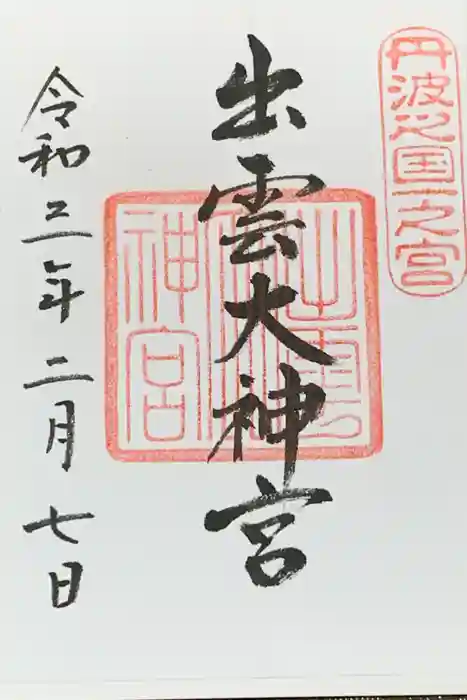 丹波之国一之宮
出雲大神宮
出雲大神宮
令和三年二月七日